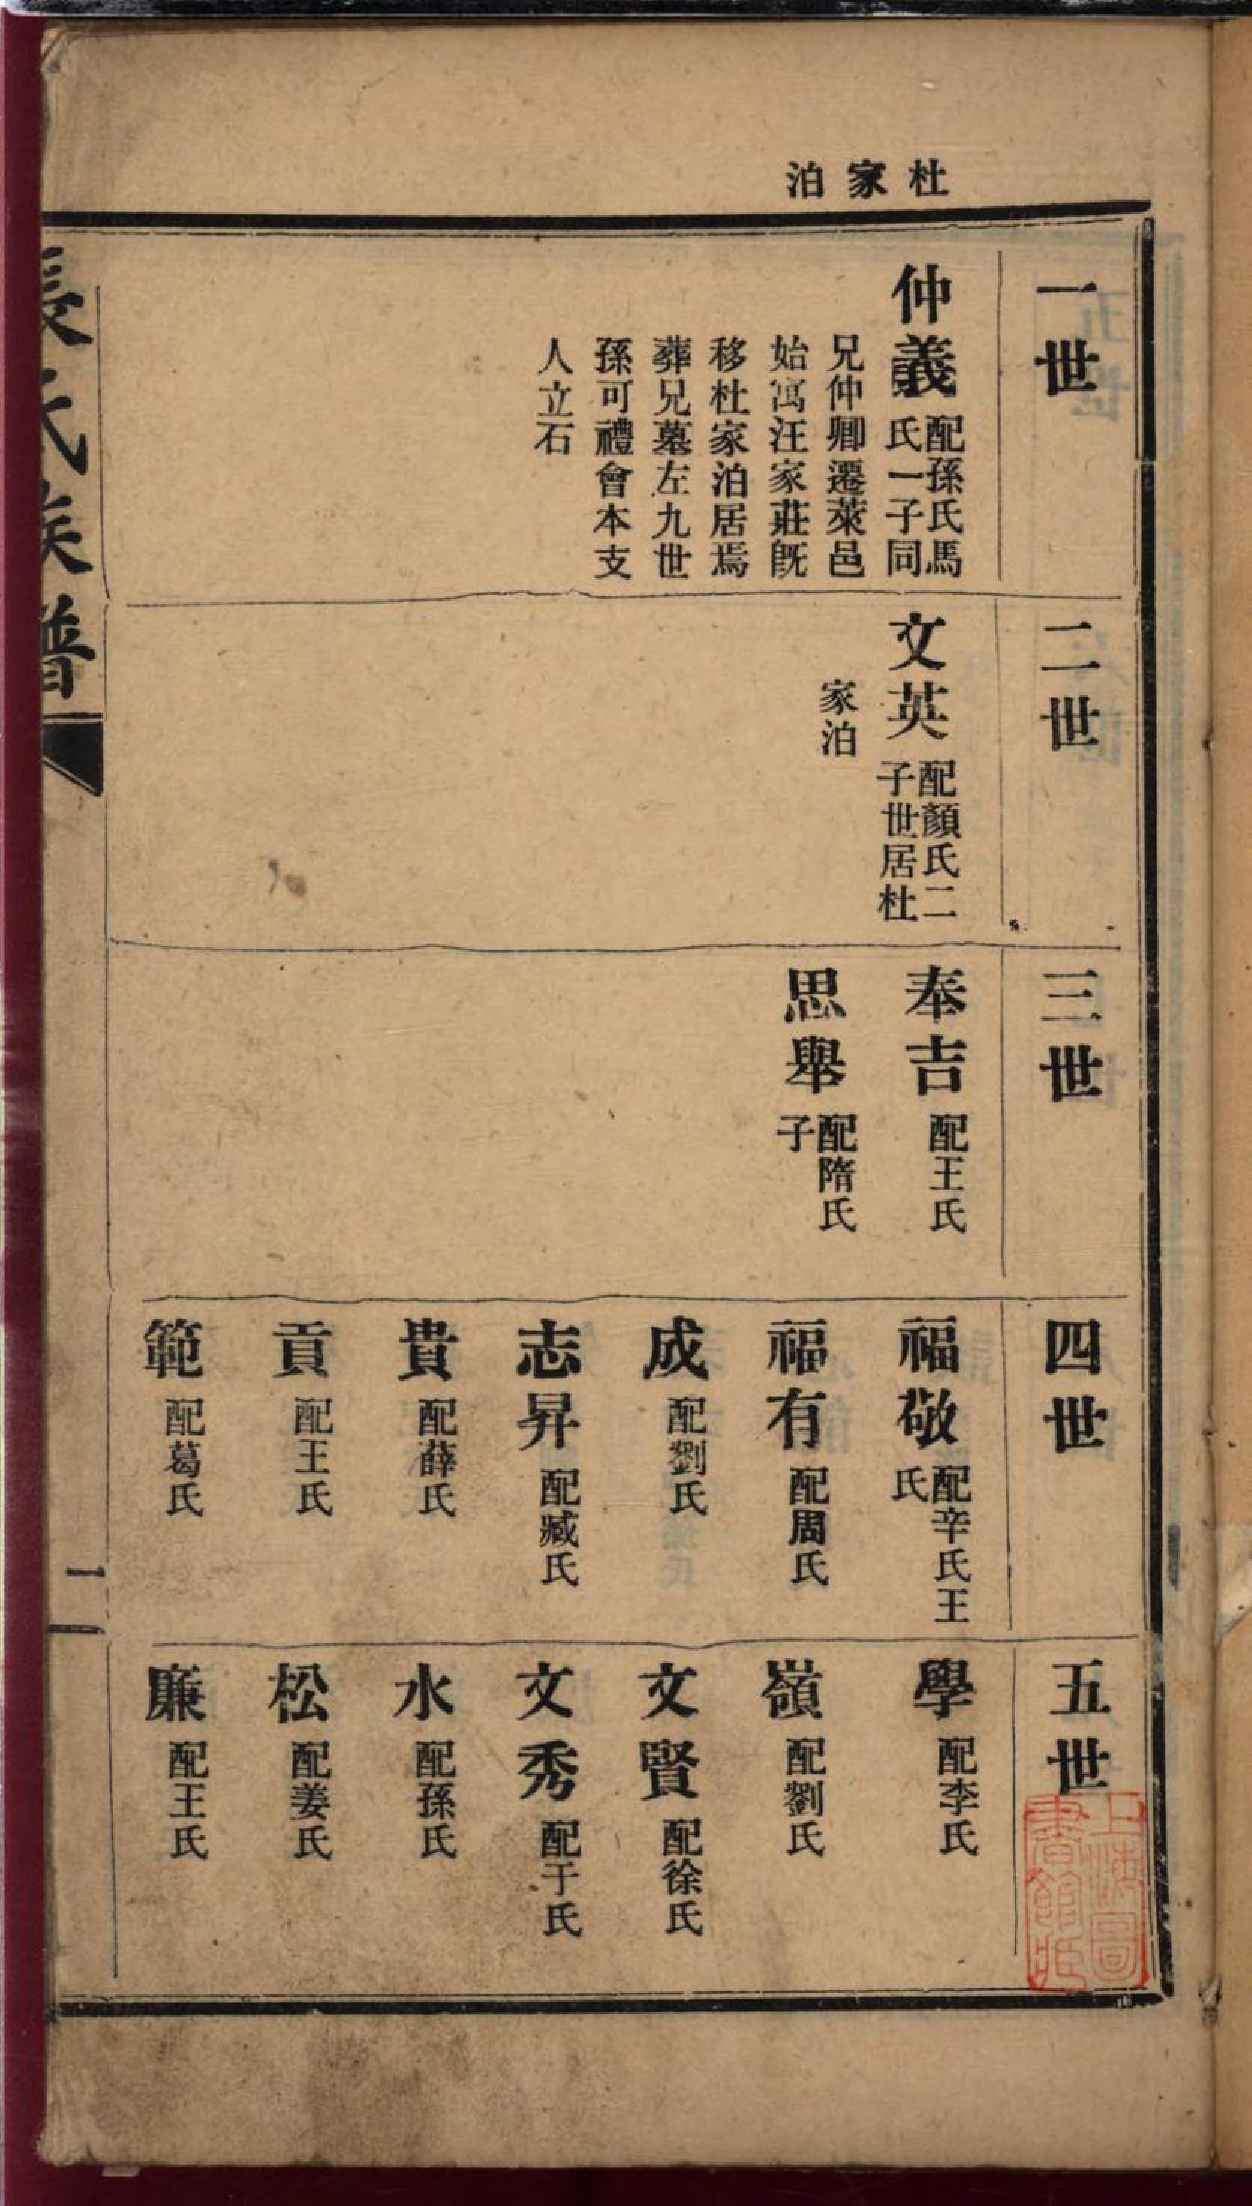 杜家泊
一世
仲義
配孫氏馬
氏一子同
兄仲卿遷萊邑
始寓汪家莊旣
移杜家泊居焉
葬兄墓左九世
孫可禮會本支
人立石
二世
文英
配顏氏二
子世居杜
家泊
三世
奉吉
配王氏
思舉
配隋氏
子
四世
福敬
配辛氏王
氏
福有
配周氏
成
配劉氏
志昇
配臧氏
貴
配薛氏
貢
配王氏
範
配葛氏
五世
學
配李氏
嶺
配劉氏
文賢
配徐氏
文秀
配于氏
水
配孫氏
松
配姜氏
廉
配王氏
張氏族譜
一
上海圖
書館藏